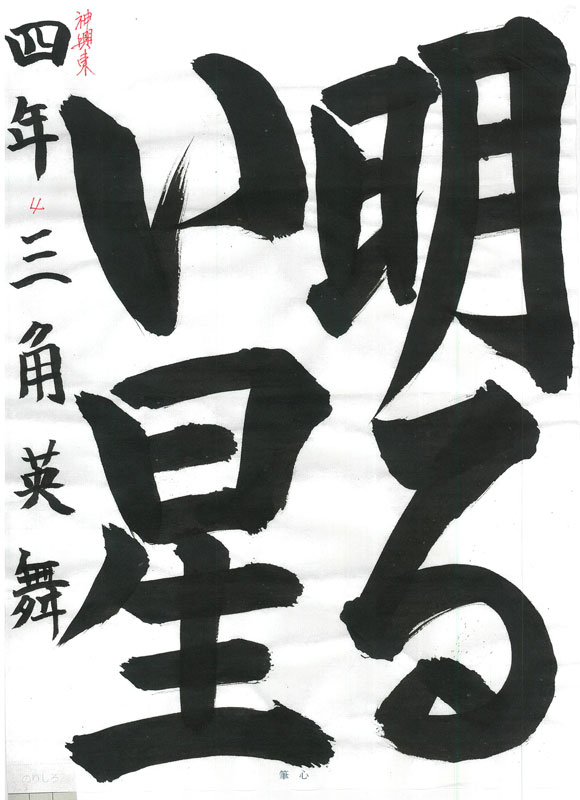 明る
い星
神興東
四年4三角英舞
筆心
のりしろ